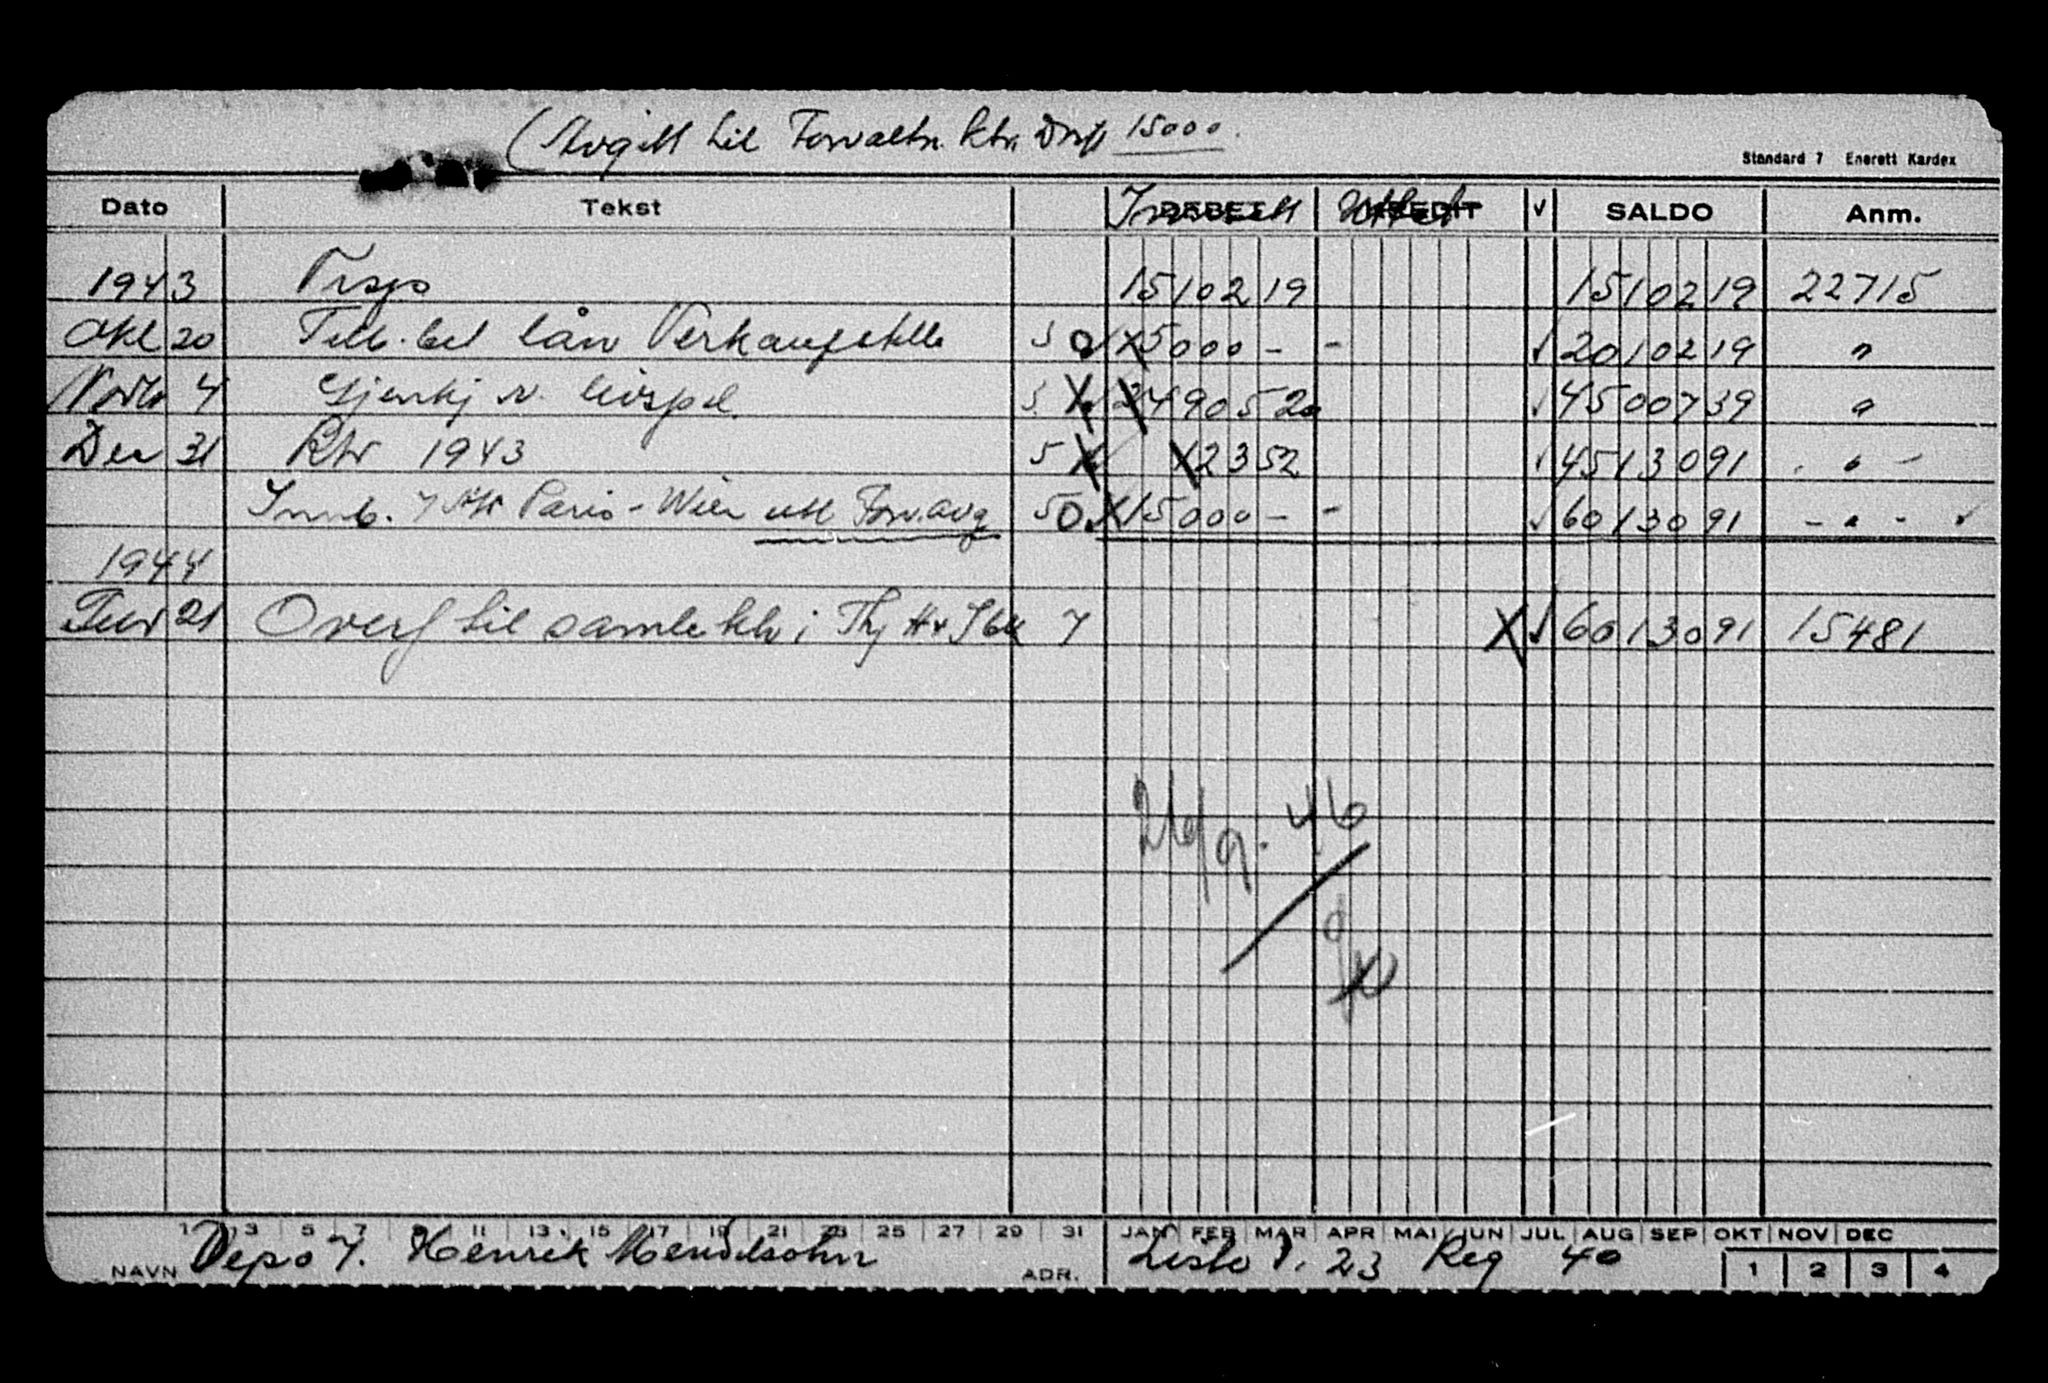 (Avgitt til Forvaltn. ktr. Drift 15000.
Standard 7 Enerett Kardex
Dato Tekst DEBET KREDIT √ SALDO Anm.
1943 15102 19 15102 19 22715
Okt 20 Tilb. bet lån Verkaufstelle 5 0 5000 - - √ 20102 19 "
Novbr 4 5 24905 20 √ 45007 39 "
Des 31 Rtr 1943 5 123 52 √ 45130 91 - " -
Innb. Paris - Wien utl Forv. avg 50 15000 - - √ 60130 91 - " - √
1944
Febr 21 Overf til samlektr i 7 √ 60130 91 15481
26/9. 46
1 3 5 7 9 11 13 15 17 19 21 23 25 27 29 31 JAN FEB MAR APR MAI JUN JUL AUG SEP OKT NOV DEC
NAVN Depo 7. Henrik Mendelsohn ADR. Liste 1. 23 Reg 40 1 2 3 4